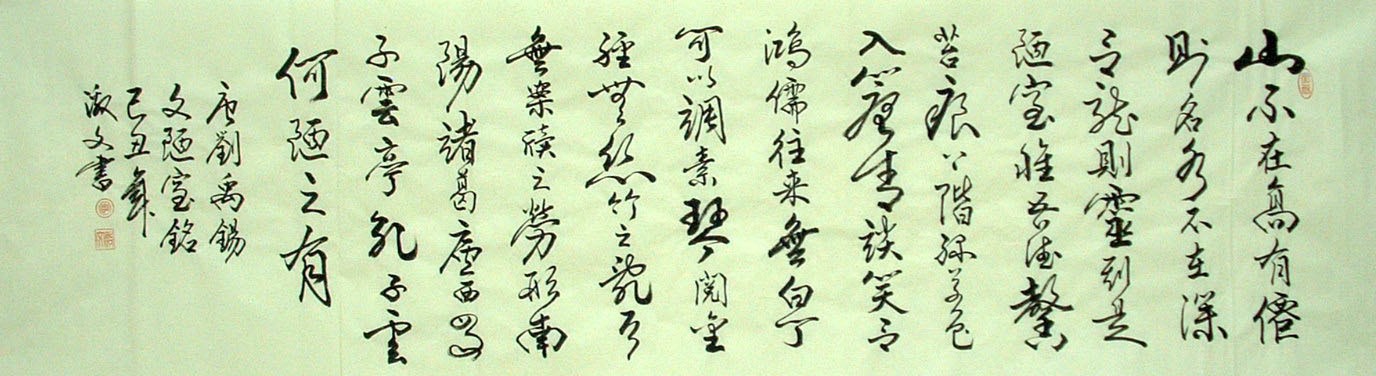 山不在高有僊
則名水不在深
有龍則靈斯是
陋室惟吾德馨
苔痕上階綠草色
入簾青談笑有
鴻儒往来無白丁
可以調素琴閱金
經無絲竹之亂耳
無案牘之勞形南
陽諸葛廬西蜀
子雲亭孔子雲
何陋之有
唐劉禹錫
文陋室銘
己丑年
文書